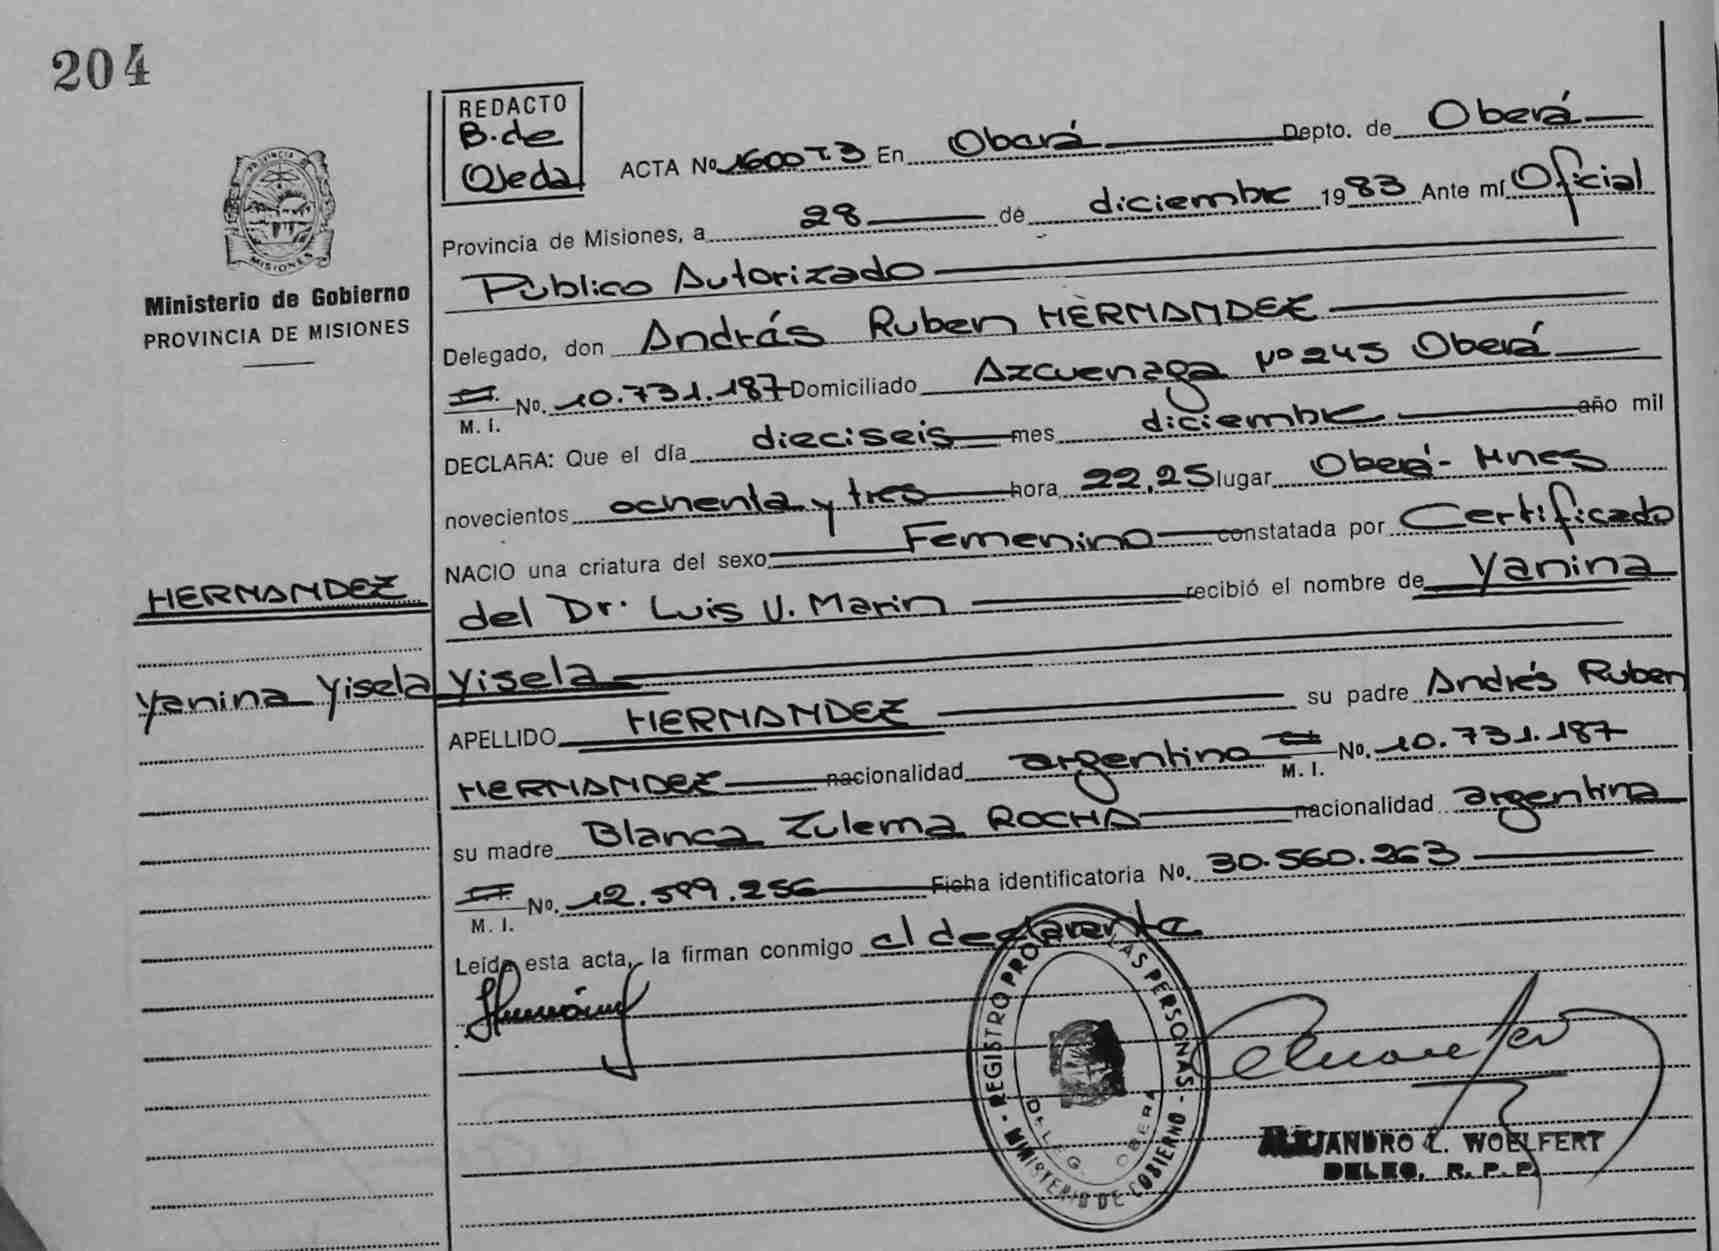 204
REDACTO
B. de
Ojeda
ACTA Nº 1600 T.3 En Oberá Depto. de Oberá
Provincia de Misiones, a 28 de diciembre 1983 Ante mí Oficial
Público Autorizado
MISIONES
Ministerio de Gobierno
PROVINCIA DE MISIONES
Delegado, don Andrés Ruben HERNANDEZ
M. I. No. 10.731.187 Domiciliado Azcuenaga Nº 245 Oberá
DECLARA: Que el día dieciseis mes diciembre año mil
novecientos ochenta y tres hora 22,25 lugar Oberá - Mnes
NACIO una criatura del sexo Femenino constatada por Certificado
HERNANDEZ
del Dr. Luis U. Marin recibió el nombre de Yanina
Yanina Yisela
Yisela
APELLIDO HERNANDEZ su padre Andrés Ruben
HERNANDEZ nacionalidad argentino M. I. No. 10.731.187
su madre Blanca Zulema ROCHA nacionalidad argentina
M. I. No. 12.599.256 Ficha identificatoria Nº. 30.560.263
Leída esta acta, la firman conmigo el declarante
REGISTRO PRO LAS PERSONAS - MINISTERIO DE GOBIERNO -
DELEG. OBERA
ALEJANDRO L. WOELFERT
DELEG. R. P. P.